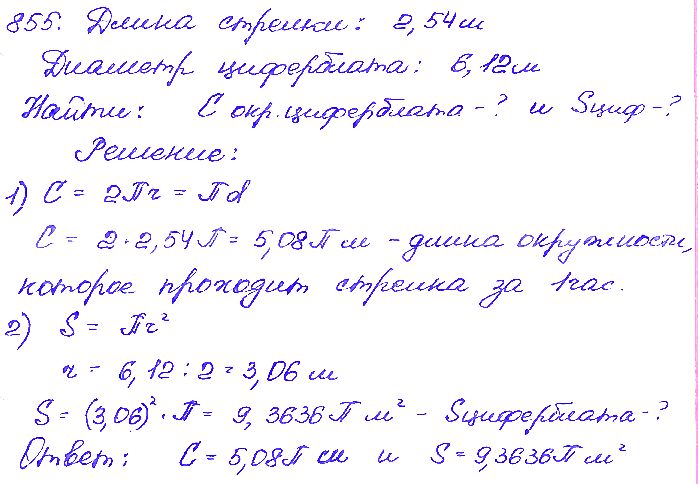 855. Длина стрелки: 2,54 м
Диаметр циферблата: 6,12 м
Найти: С окр. циферблата - ? и Sциф - ?
Решение:
1) С = 2Пr = Пd
С = 2·2,54П = 5,08П м - длина окружности,
которое проходит стрелка за 1 час.
2) S = Пr²
r = 6,12 : 2 = 3,06 м
S = (3,06)² · П = 9,3636П м² - Sциферблата - ?
Ответ: С = 5,08П м и S = 9,3636П м²